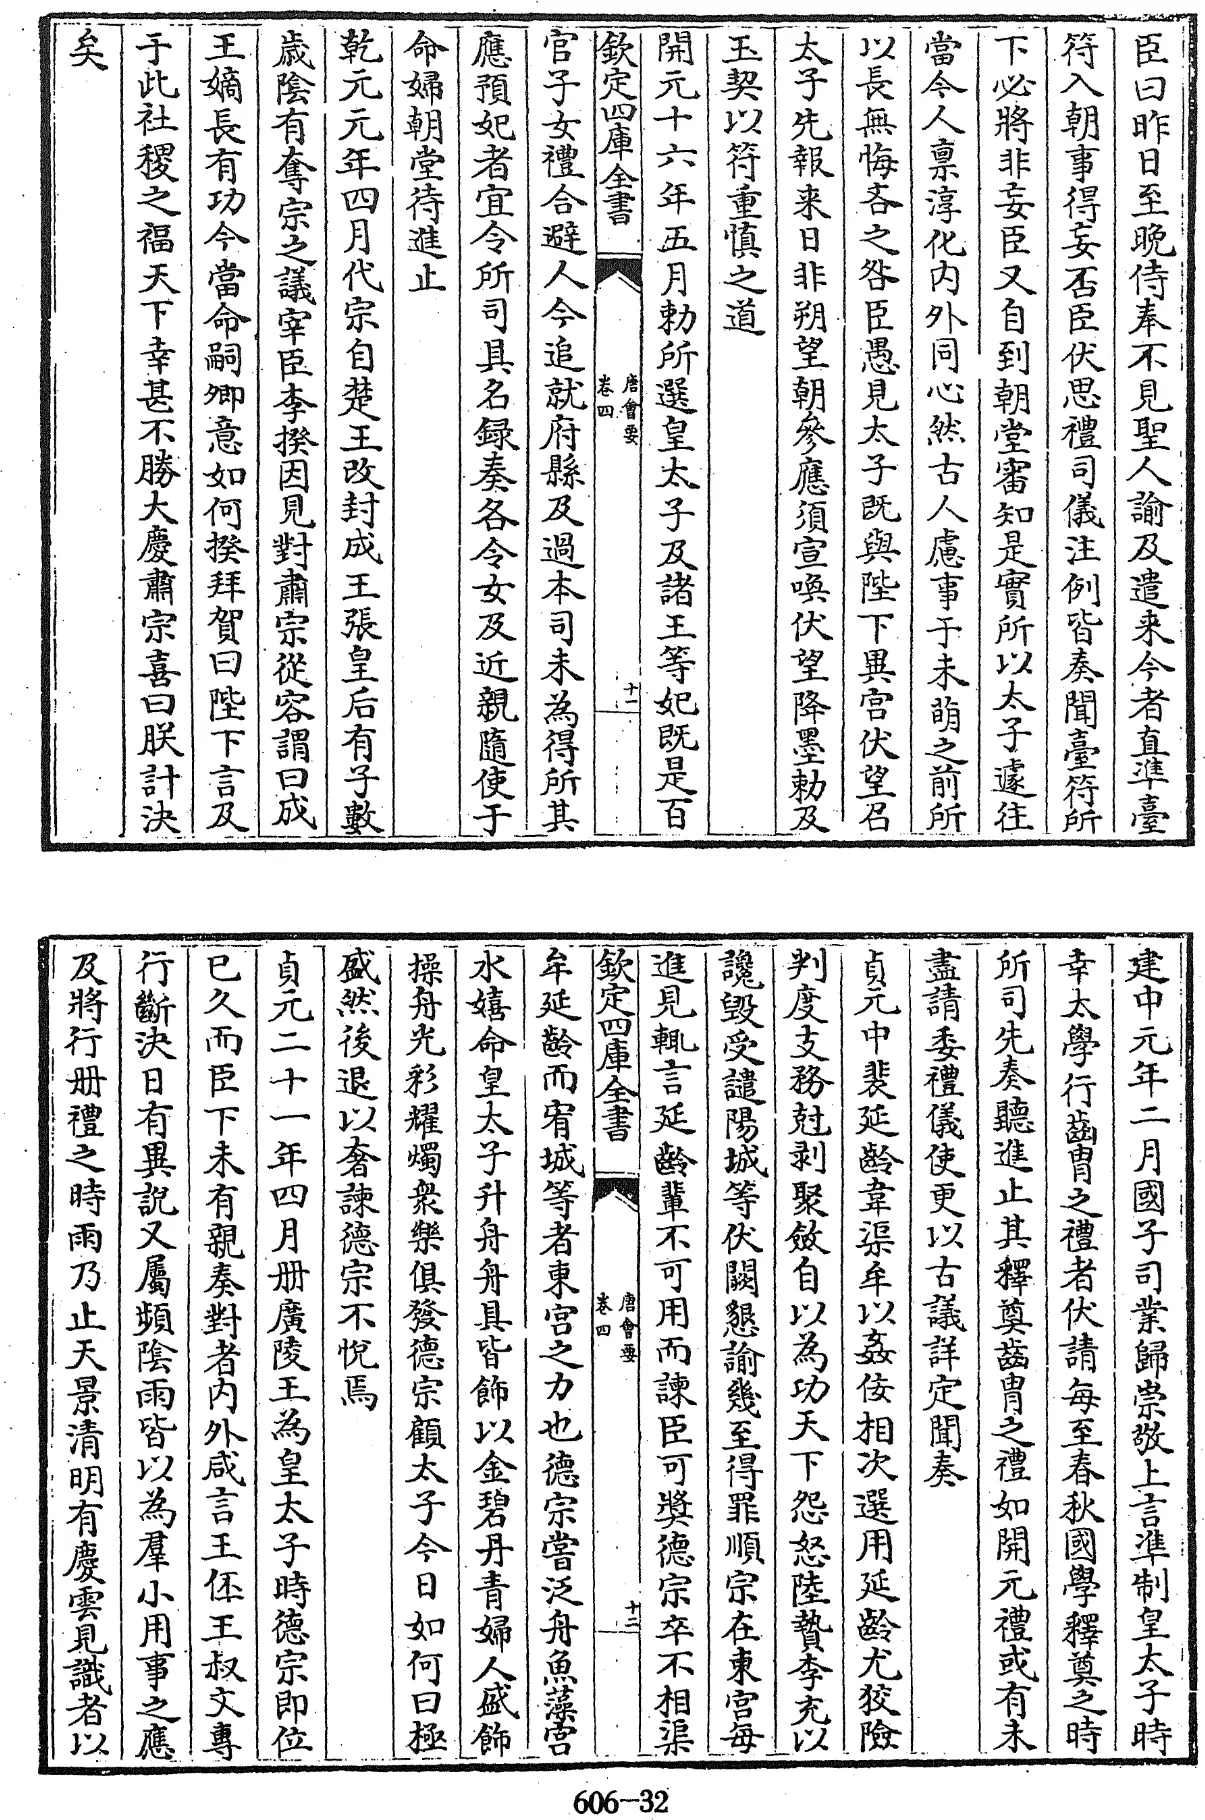 臣曰昨日至晚侍奉不見聖人諭及遣来今者直準臺
符入朝事得妄否臣伏思禮司儀注例皆奏聞臺符所
下必將非妄臣又自到朝堂審知是實所以太子遽往
當今人禀淳化内外同心然古人慮事于未萌之前所
以長無悔吝之咎臣愚見太子既與陛下異宫伏望召
太子先報来日非朔望朝參應須宣喚伏望降墨勅及
玉契以符重慎之道
開元十六年五月勅所選皇太子及諸王等妃既是百
欽定四庫全書
唐會要
卷四
十一
官子女禮合避人今追就府縣及過本司未為得所其
應預妃者宜令所司具名録奏各令女及近親隨使于
命婦朝堂待進止
乾元元年四月代宗自楚王改封成王張皇后有子數
歳陰有奪宗之議宰臣李揆因見對肅宗從容謂曰成
王嫡長有功今當命嗣卿意如何揆拜賀曰陛下言及
于此社稷之福天下幸甚不勝大慶肅宗喜曰朕計決
矣
建中元年二月國子司業歸崇敬上言準制皇太子時
幸太學行齒胄之禮者伏請每至春秋國學釋奠之時
所司先奏聽進止其釋奠齒胄之禮如開元禮或有未
盡請委禮儀使更以古議詳定聞奏
貞元中裴延齡韋渠牟以姦佞相次選用延齡尤狡險
判度支務尅剥聚斂自以為功天下怨怒陸贄李充以
讒毁受譴陽城等伏闕懇諭幾至得罪順宗在東宫每
進見輒言延齡輩不可用而諫臣可奬德宗卒不相渠
欽定四庫全書
唐會要
卷四
十二
牟延齡而宥城等者東宫之力也德宗嘗泛舟魚藻宫
水嬉命皇太子升舟舟具皆飾以金碧丹青婦人盛飾
操舟光彩耀燭衆樂俱發德宗顧太子今日如何曰極
盛然後退以奢諫德宗不悅焉
貞元二十一年四月册廣陵王為皇太子時德宗即位
已久而臣下未有親奏對者内外咸言王伾王叔文專
行斷決日有異説又屬頻陰雨皆以為羣小用事之應
及將行册禮之時雨乃止天景清明有慶雲見識者以
606-32